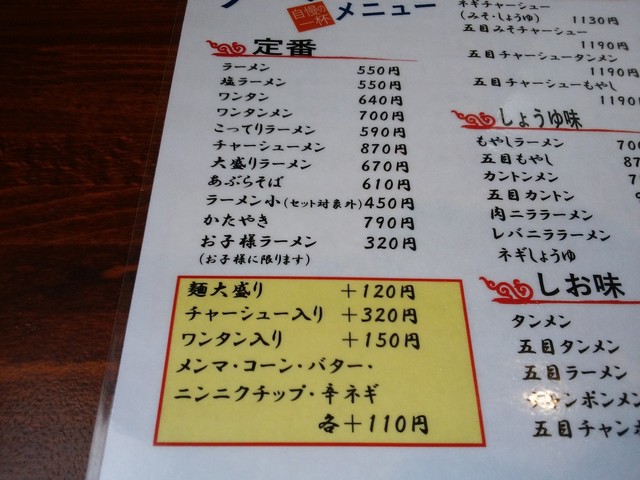 自慢の
一杯
メニュー
定番
ラーメン 550円
塩ラーメン 550円
ワンタン 640円
ワンタンメン 700円
こってりラーメン 590円
チャーシューメン 870円
大盛りラーメン 670円
あぶらそば 610円
ラーメン小(セット対象外) 450円
かたやき 790円
お子様ラーメン 320円
(お子様に限ります)
麺大盛り +120円
チャーシュー入り +320円
ワンタン入り +150円
メンマ・コーン・バター・
ニンニクチップ・辛ネギ
各+110円
ネギチャーシュー
(みそ・しょうゆ) 1130円
五目みそチャーシュー
1190円
五目チャーシュータンメン
1190円
五目チャーシューもやし
1190
しょうゆ味
もやしラーメン 700
五目もやし 87
カントンメン
五目カントン
肉ニララーメン
レバニララーメン
ネギしょうゆ
しお味
タンメン
五目タンメン
五目ラーメン
チャンポンメン
五目チャンポ